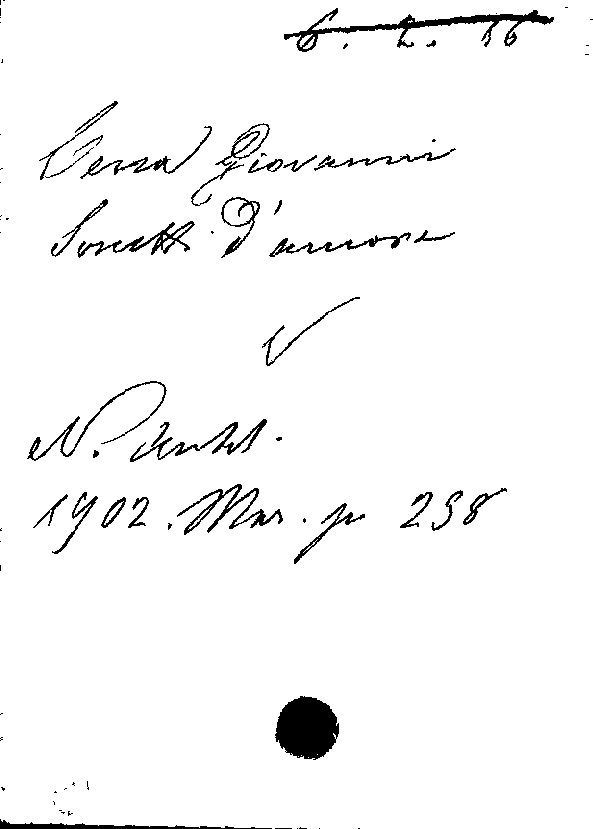 6. 2. 16
Cerra Giovanni
Sonetti d'amore
V
N. Antol.
1902. Mar. p 238